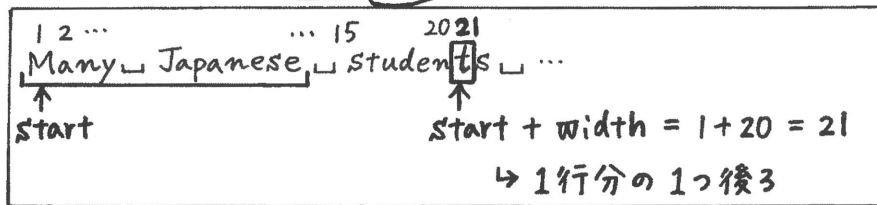 1 2 … … 15 20 21
Many␣Japanese␣students␣…
start start + width = 1+20 = 21
↳ 1行分の1つ後ろ